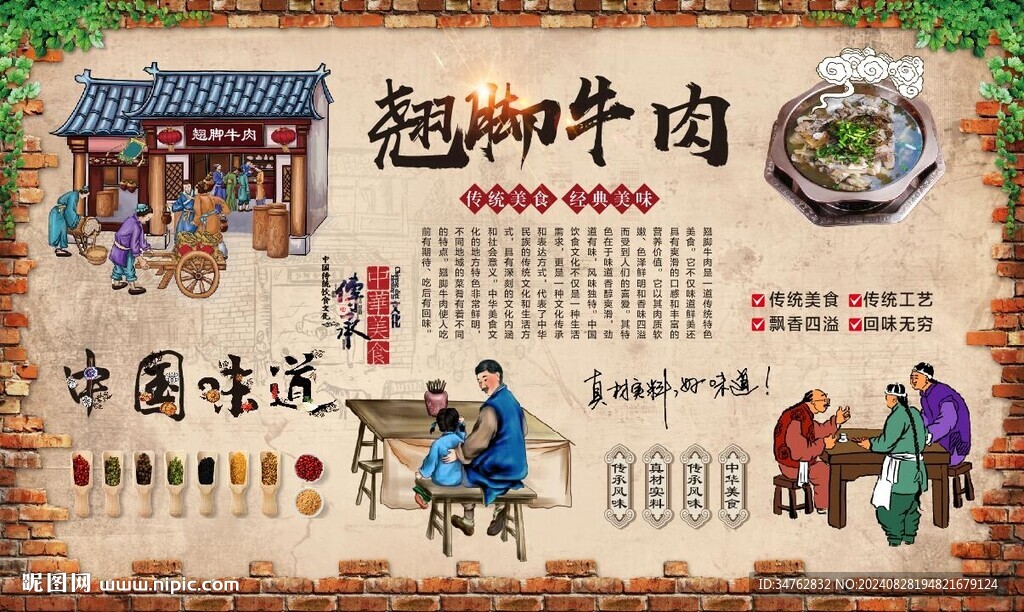 翘脚牛肉
翘脚牛肉
传统美食 经典美味
翘脚牛肉是一道传统特色
美食。它不仅味道鲜美还
具有爽滑的口感和丰富的
营养价值。它以其肉质软
嫩、色泽鲜明和香味四溢
而受到人们的喜爱。其特
色在于味道香醇爽滑，劲
道有味，风味独特。中国
饮食文化不仅是一种生活
需求，更是一种文化传承
和表达方式，代表了中华
民族的传统文化和生活方
式，具有深刻的文化内涵
和社会意义。中华美食文
化的地方特色非常鲜明，
不同地域的菜肴有着不同
的特点。翘脚牛肉使人吃
前有期待、吃后有回味。
文化
中華美食
傳承
中国传统饮食文化
传统美食 传统工艺
飘香四溢 回味无穷
中国味道
真材实料,好味道!
传承风味
真材实料
传承风味
中华美食
昵图网 www.nipic.com
ID:34762832 NO:20240828194821679124